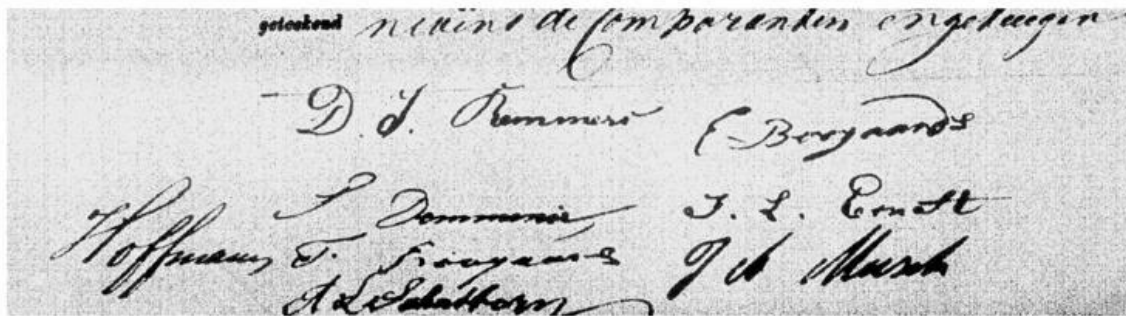 geteekend nevens de Comparanten en getuigen
D. J. Remmers E. Boogaards
S Dommenie J. L. Ernst
Hoffmann F. Boogaards J A Musch
A L Schatborn